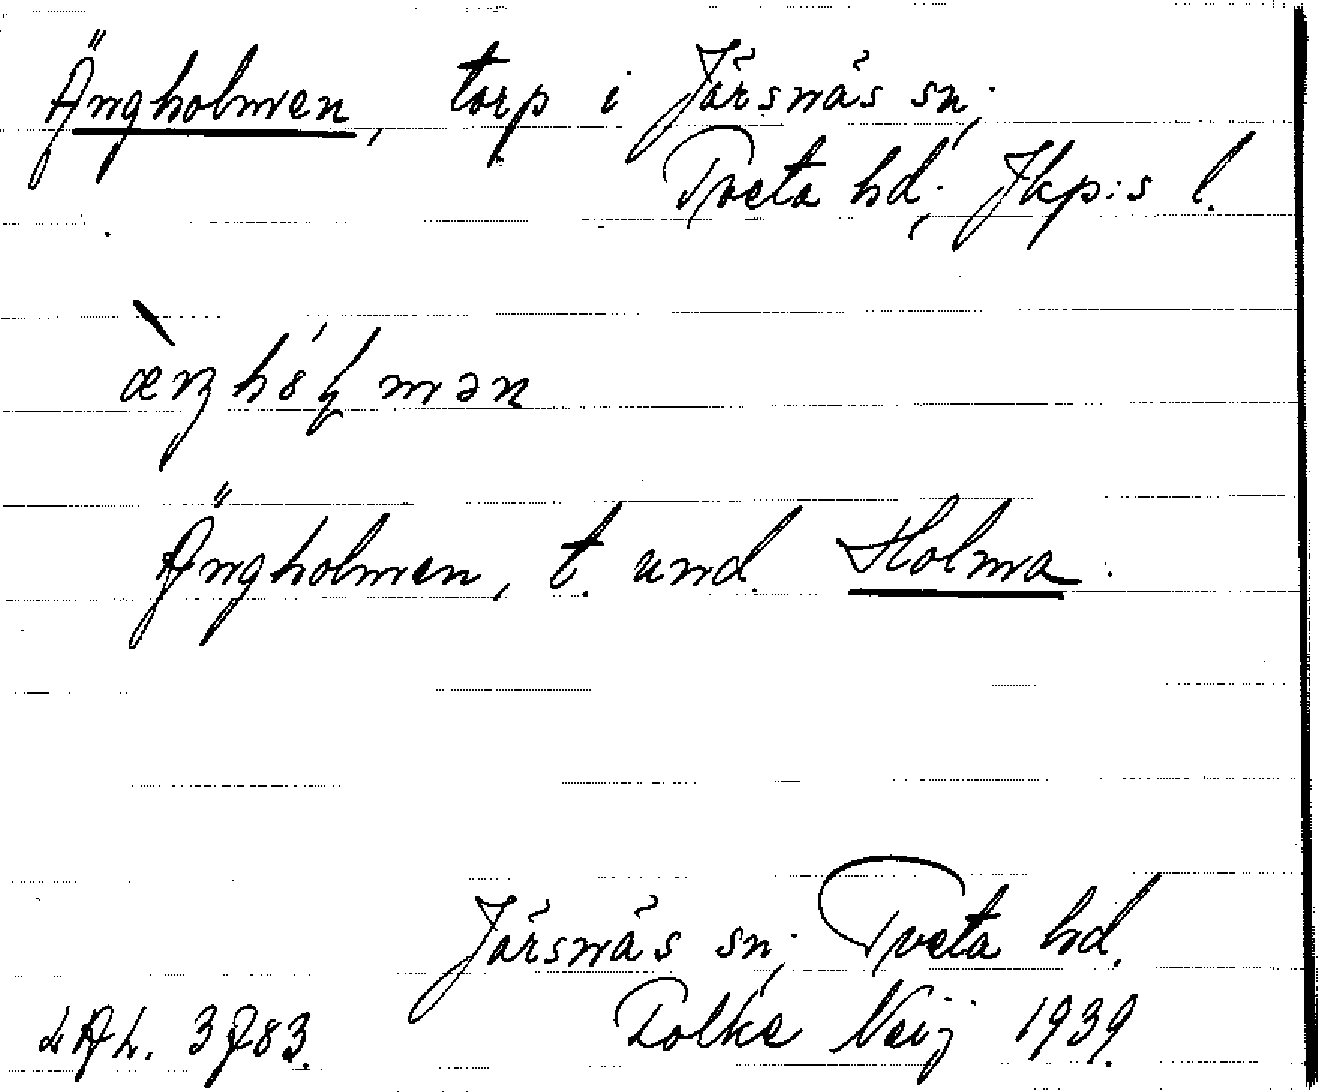 Ängholmen, torp i Järsnäs sn;
Tveta hd; Jkp:s l.
Ängholmen, t. und. Holma.
Järsnäs sn; Tveta hd.
Folke Neij 1939.